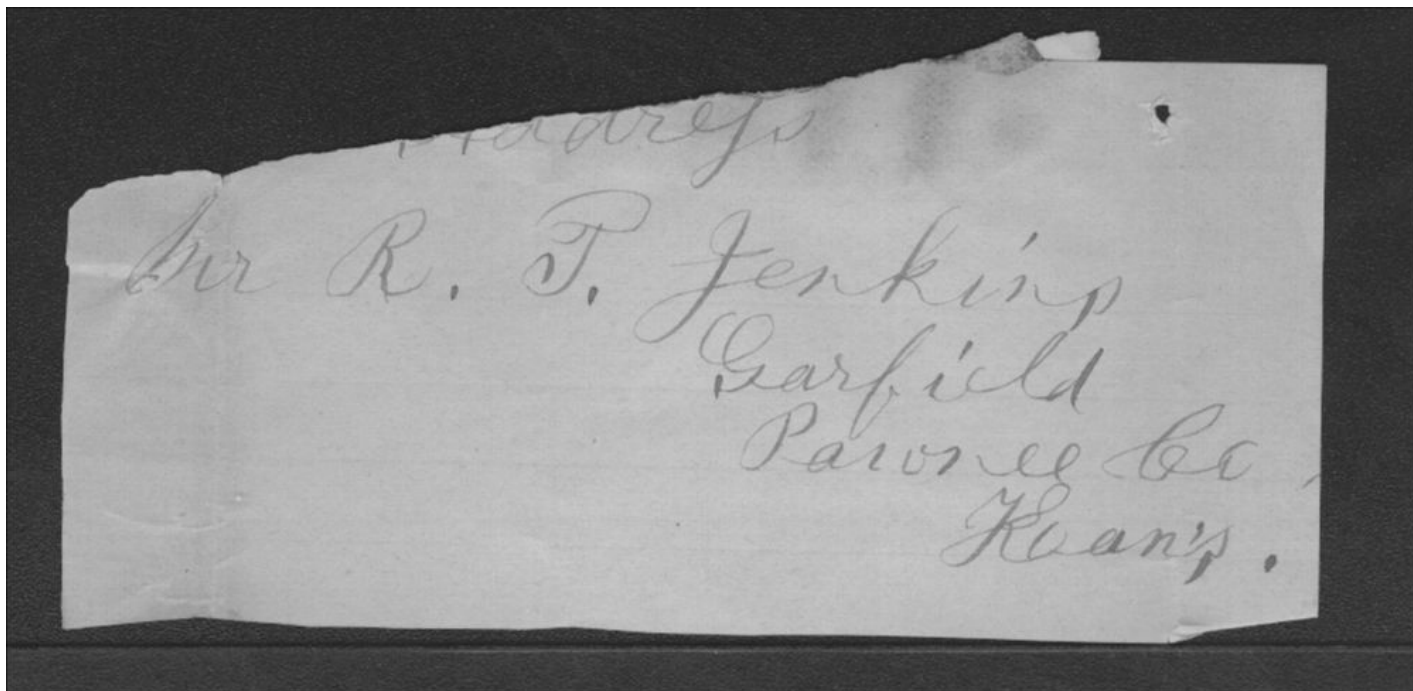 Address
Mr R. T. Jenkins
Garfield
Pawnee Co,
Kan's.